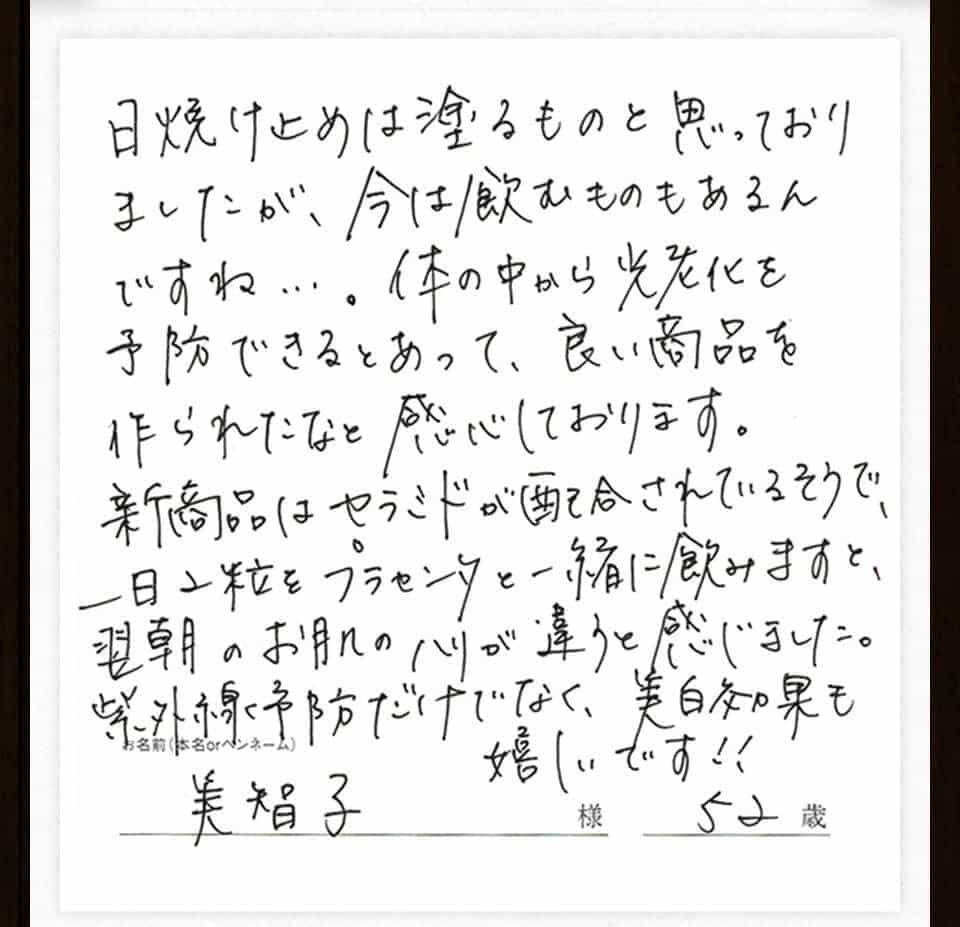 日焼け止めは塗るものと思っており
ましたが、今は飲むものもあるん
ですね…。体の中から光老化を
予防できるとあって、良い商品を
作られたなと感心しております。
新商品はセラミドが配合されているそうで、
一日2粒をプラセンタと一緒に飲みますと、
翌朝のお肌のハリが違うと感じました。
紫外線予防だけでなく、美白効果も
嬉しいです!!
お名前(本名orペンネーム)
美智子 様 52 歳